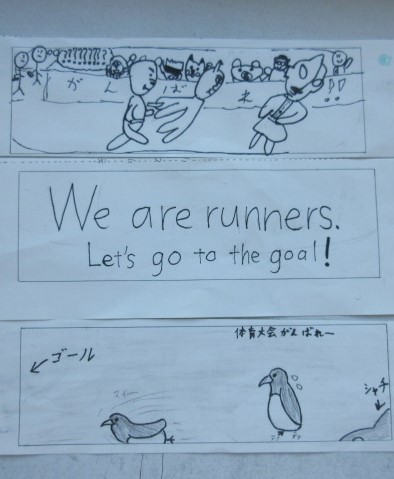 がんばれ!!
We are runners.
Let's go to the goal!
体育大会がんばれー
←ゴール
シャチ
スイー